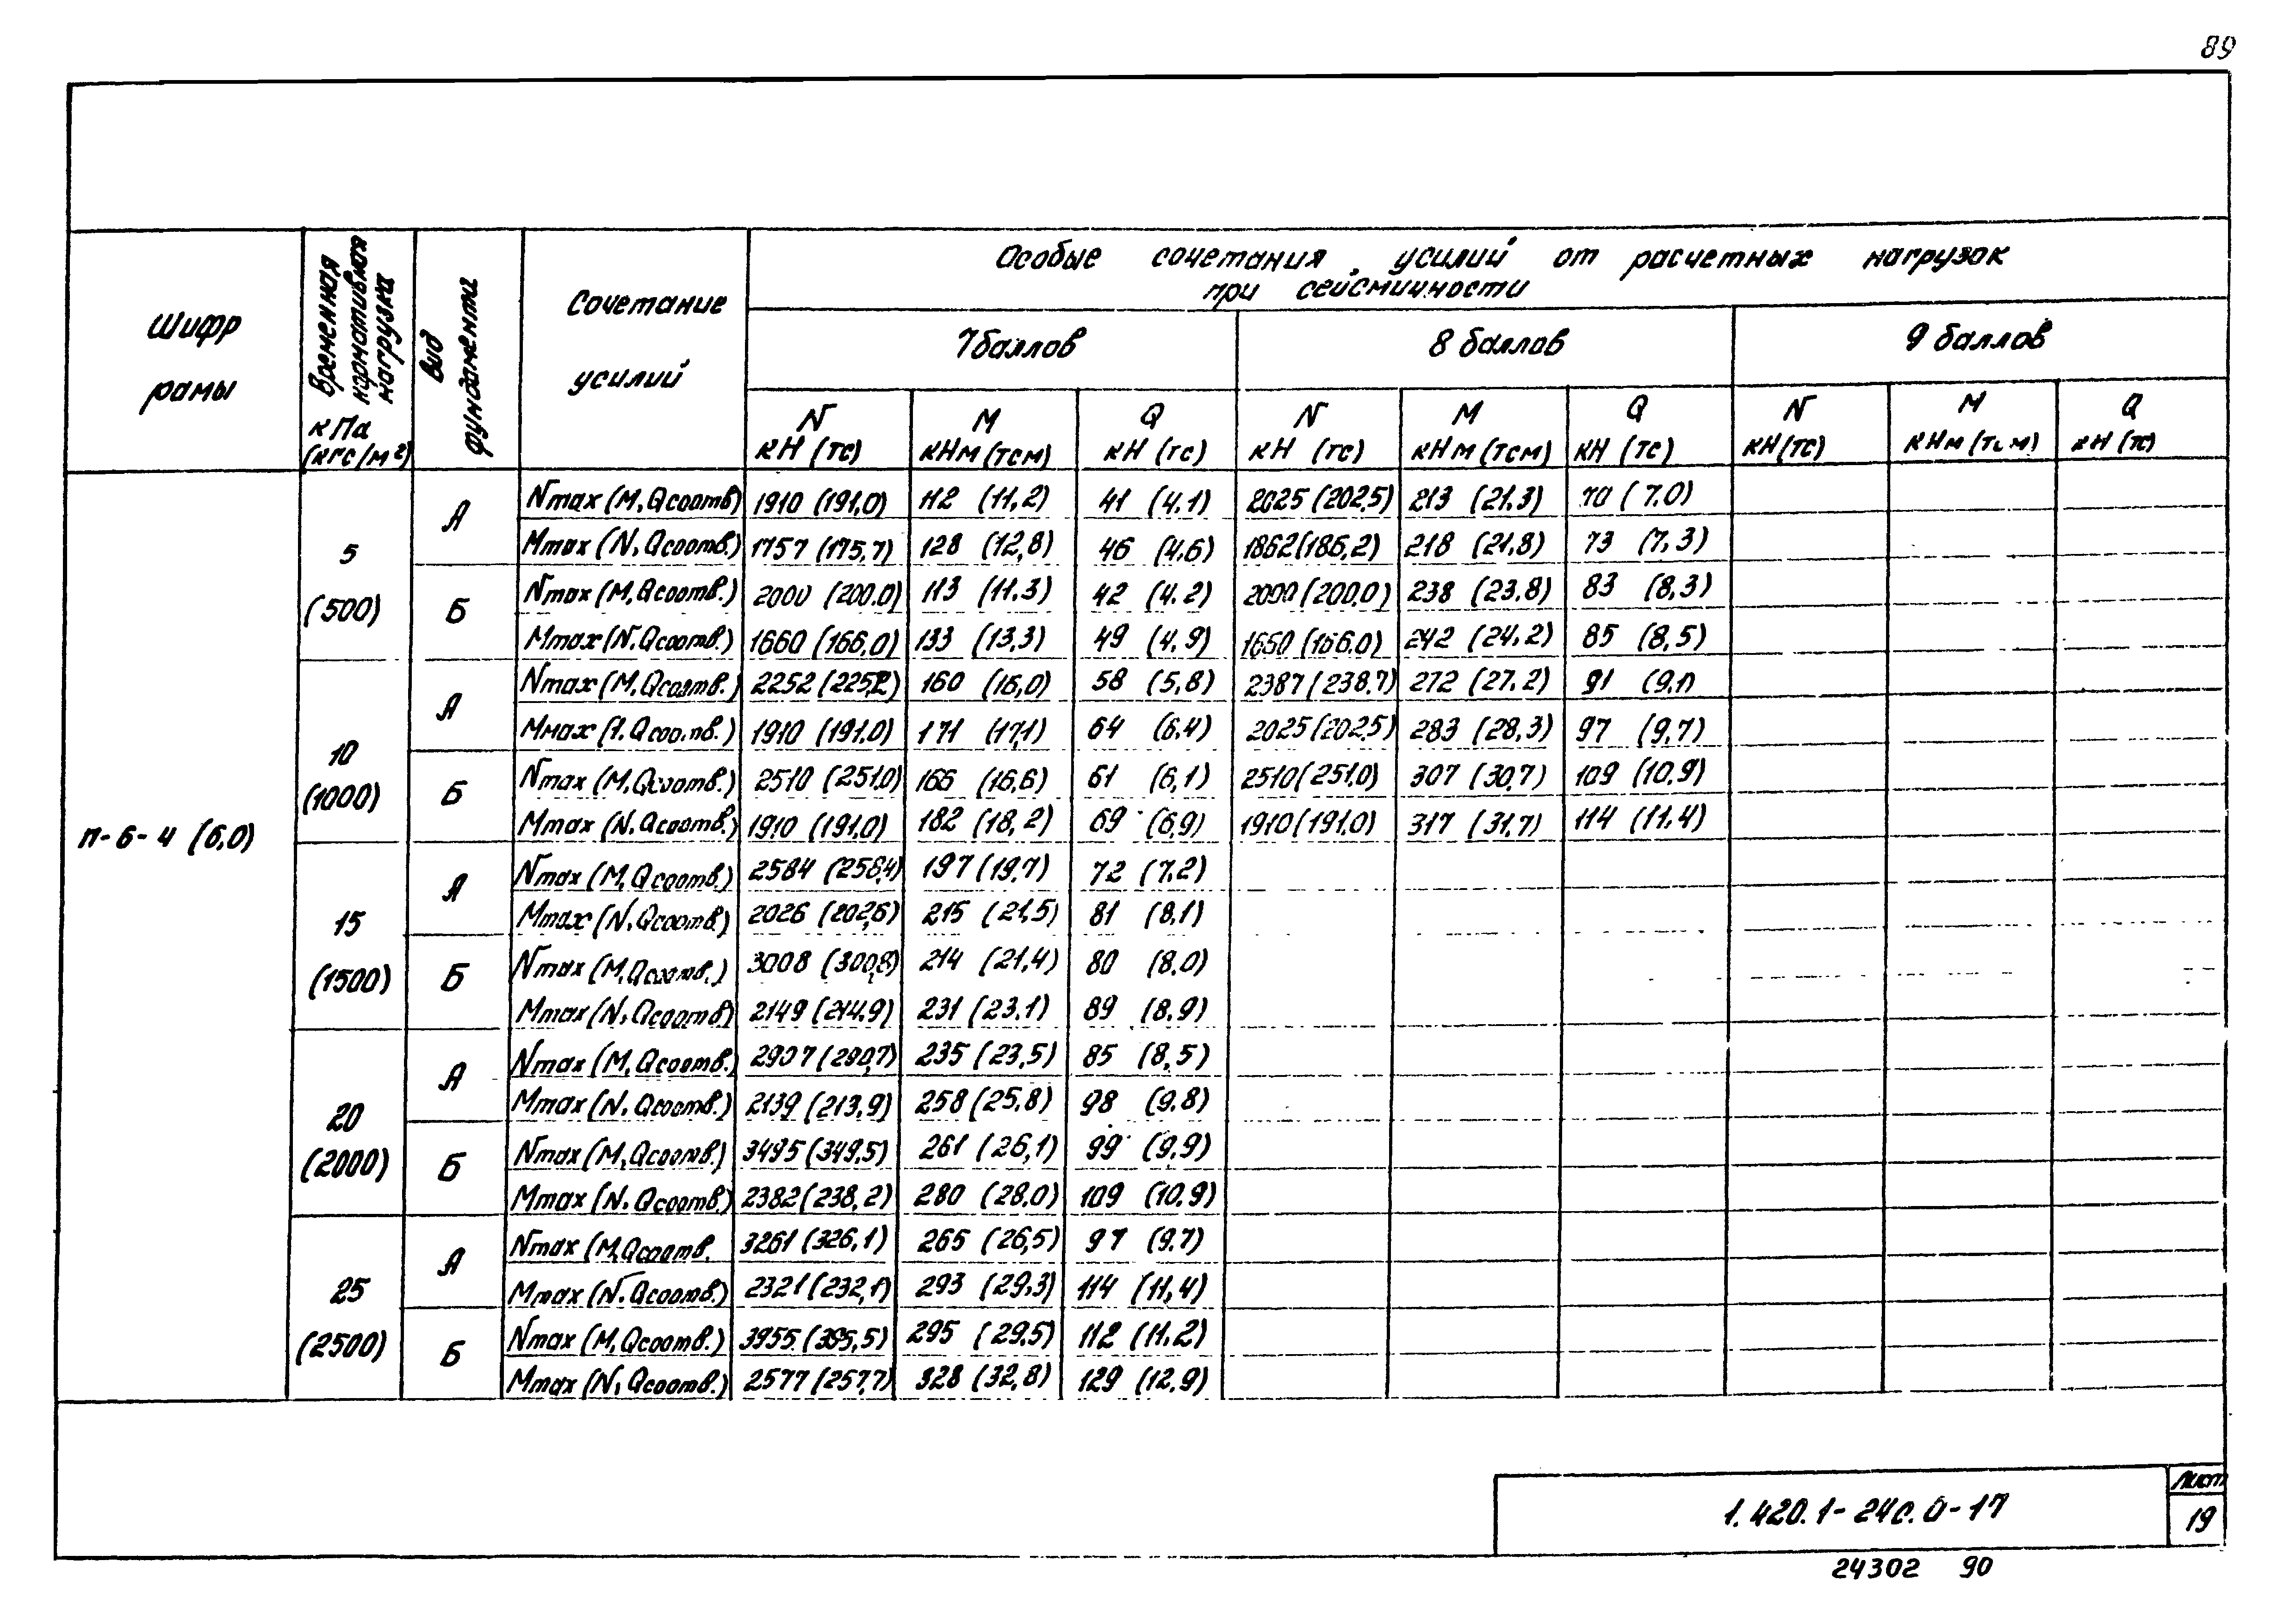 89
Шифр рамы
Временная нормативная нагрузка кПа (кгс/м²)
Вид фундамента
Сочетание усилий
Особые сочетания усилий от расчетных нагрузок
при сейсмичности
7 баллов 8 баллов 9 баллов
N кН (тс) M кНм (тсм) Q кН (тс) N кН (тс) M кНм (тсм) Q кН (тс) N кН (тс) M кНм (тсм) Q кН (тс)
п-6-4 (6,0)
5 (500)
А Nmax (M, Qсоотв) 1910 (191,0) 112 (11,2) 41 (4,1) 2025 (202,5) 213 (21,3) 70 (7,0)
Mmax (N, Qсоотв.) 1757 (175,7) 128 (12,8) 46 (4,6) 1862 (186,2) 218 (21,8) 73 (7,3)
Б Nmax (M, Qсоотв.) 2000 (200,0) 113 (11,3) 42 (4,2) 2000 (200,0) 238 (23,8) 83 (8,3)
Mmax (N, Qсоотв.) 1660 (166,0) 133 (13,3) 49 (4,9) 1660 (166,0) 242 (24,2) 85 (8,5)
10 (1000)
А Nmax (M, Qсоотв.) 2252 (225,2) 160 (16,0) 58 (5,8) 2387 (238,7) 272 (27,2) 91 (9,1)
Mмах (N, Qсоотв.) 1910 (191,0) 171 (17,1) 64 (6,4) 2025 (202,5) 283 (28,3) 97 (9,7)
Б Nmax (M, Qсоотв.) 2510 (251,0) 166 (16,6) 61 (6,1) 2510 (251,0) 307 (30,7) 109 (10,9)
Mmax (N, Qсоотв.) 1910 (191,0) 182 (18,2) 69 (6,9) 1910 (191,0) 317 (31,7) 114 (11,4)
15 (1500)
А Nmax (M, Qсоотв.) 2584 (258,4) 197 (19,7) 72 (7,2)
Mmax (N, Qсоотв.) 2026 (202,6) 215 (21,5) 81 (8,1)
Б Nmax (M, Qсоотв.) 3008 (300,8) 214 (21,4) 80 (8,0)
Mmax (N, Qсоотв) 2149 (214,9) 231 (23,1) 89 (8,9)
20 (2000)
А Nmax (M, Qсоотв.) 2907 (290,7) 235 (23,5) 85 (8,5)
Mmax (N, Qсоотв.) 2139 (213,9) 258 (25,8) 98 (9,8)
Б Nmax (M, Qсоотв.) 3495 (349,5) 261 (26,1) 99 (9,9)
Mmax (N, Qсоотв.) 2382 (238,2) 280 (28,0) 109 (10,9)
25 (2500)
А Nmax (M, Qсоотв. 3261 (326,1) 265 (26,5) 97 (9,7)
Mmax (N, Qсоотв.) 2321 (232,1) 293 (29,3) 114 (11,4)
Б Nmax (M, Qсоотв.) 3955 (395,5) 295 (29,5) 112 (11,2)
Mmax (N, Qсоотв.) 2577 (257,7) 328 (32,8) 129 (12,9)
1.420.1-24с.0-17
Лист
19
24302 90